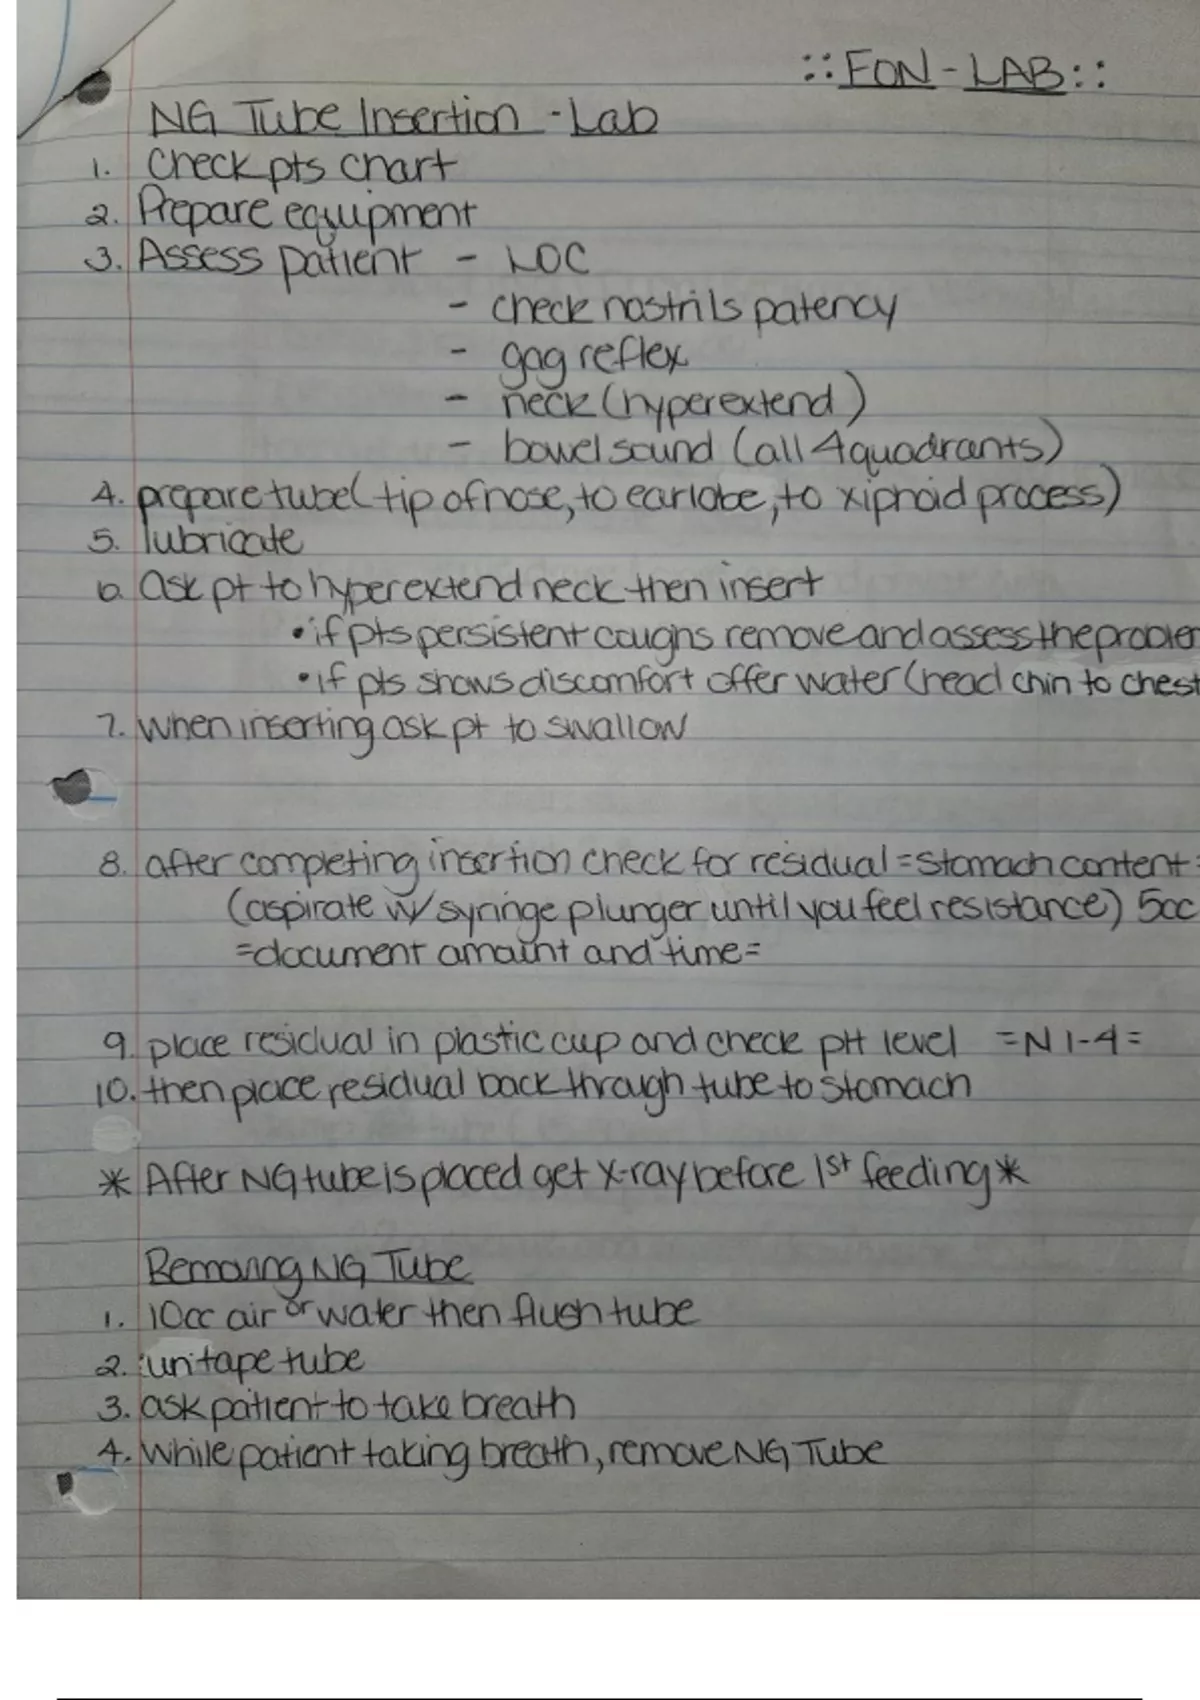 ::FON-LAB::
NG Tube Insertion - Lab
1. Check pts chart
2. Prepare equipment
3. Assess patient - LOC
- check nostrils patency
- gag reflex
- neck (hyperextend)
- bowel sound (all 4 quadrants)
4. prepare tube (tip of nose, to earlobe, to xiphoid process)
5. lubricate
6. ask pt to hyperextend neck then insert
• if pts persistent coughs remove and assess the problem
• if pts shows discomfort offer water (head chin to chest
7. When inserting ask pt to swallow
8. after completing insertion check for residual = stomach content =
(aspirate w/ syringe plunger until you feel resistance) 5cc
= document amount and time =
9. place residual in plastic cup and check pH level = N 1-4 =
10. then place residual back through tube to stomach
* After NG tube is placed get x-ray before 1st feeding *
Removing NG Tube
1. 10cc air or water then flush tube
2. untape tube
3. ask patient to take breath
4. While patient taking breath, remove NG Tube